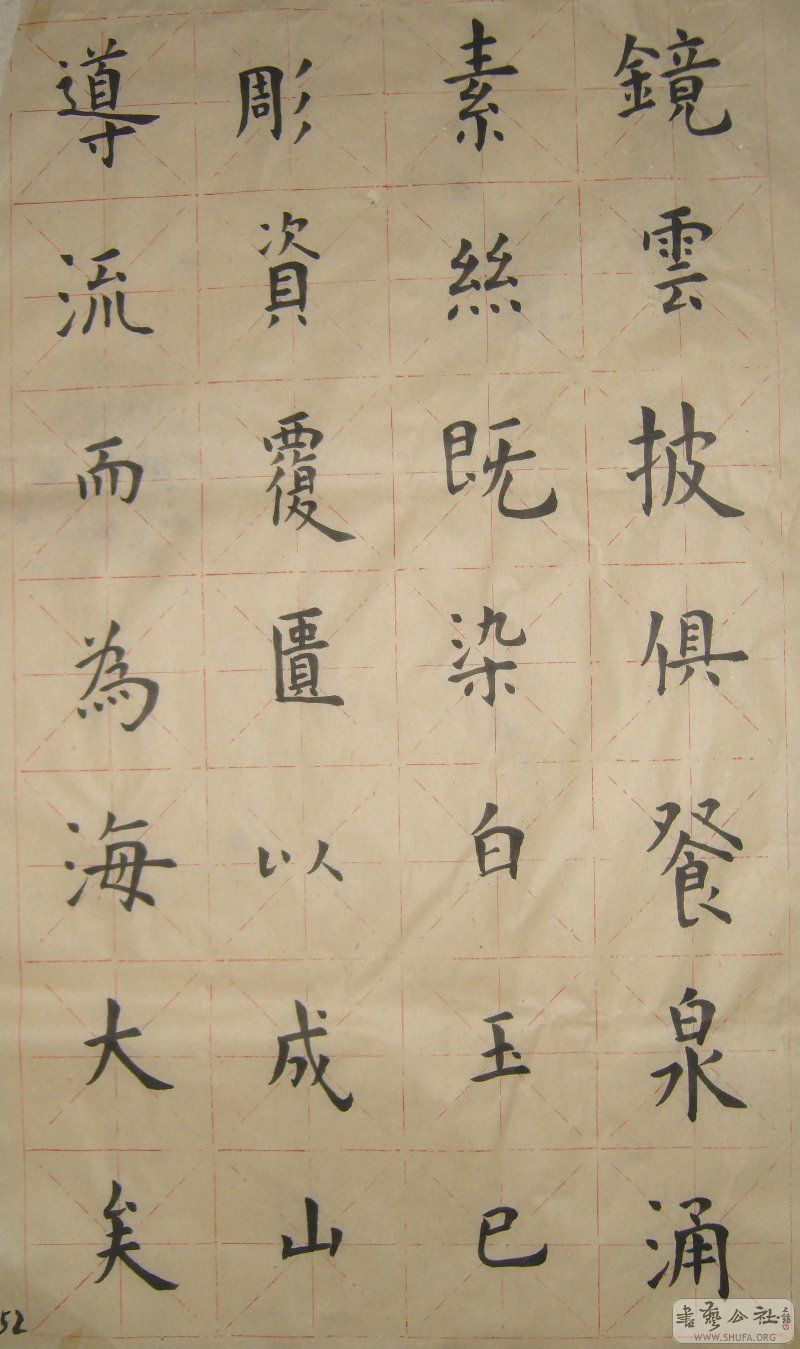 鏡雲披俱餐泉涌
素絲既染白玉已
彫資覆匱以成山
導流而為海大矣
52
書藝公社
WWW.SHUFA.ORG